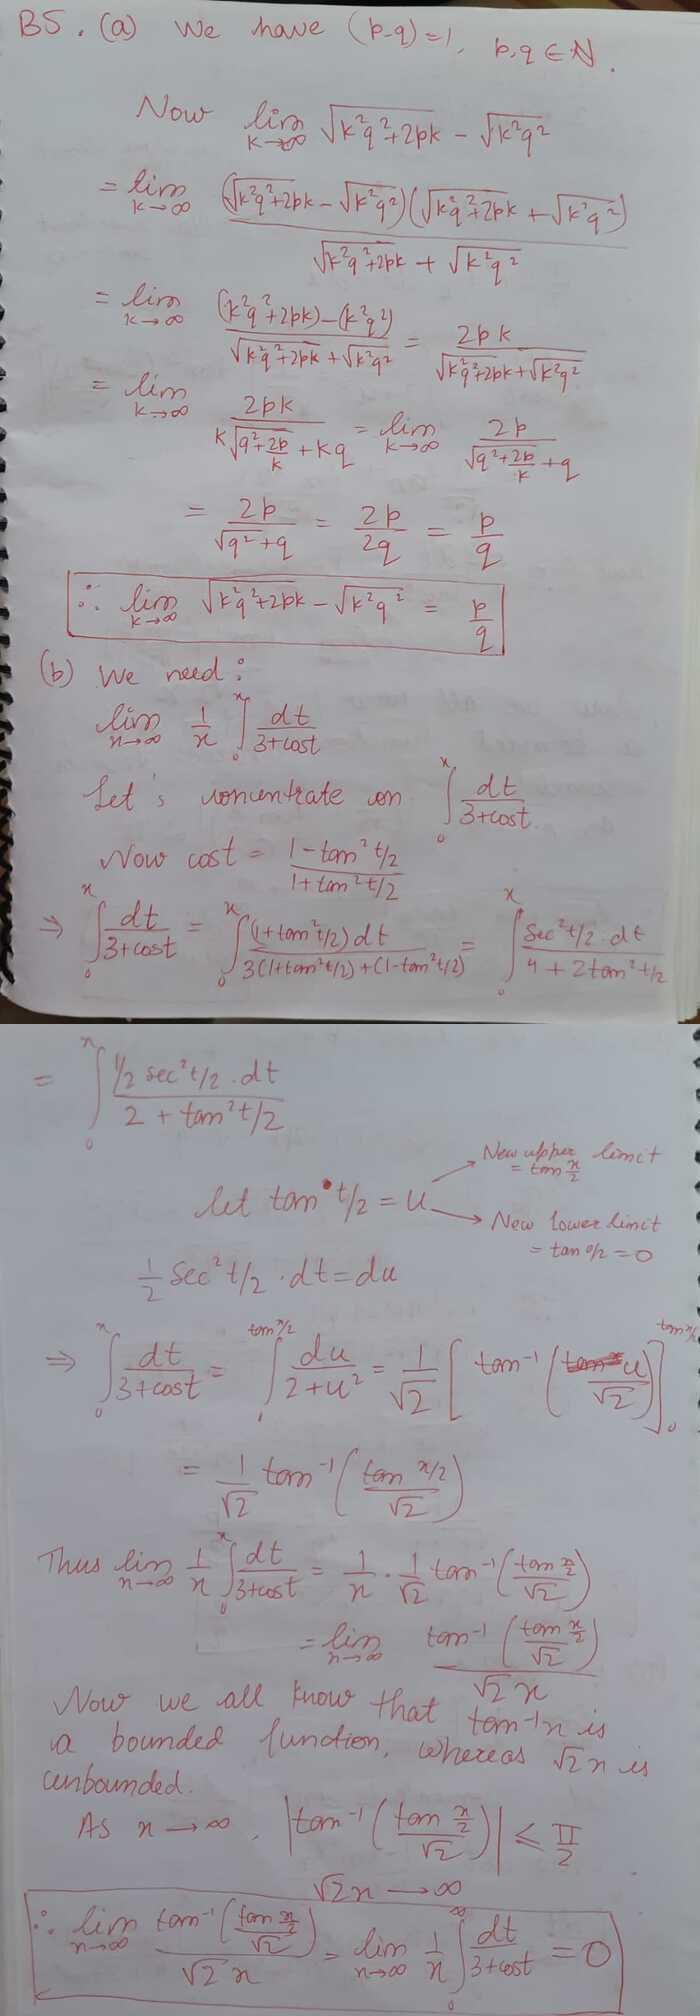 B5. (a) We have (p-q)=1, p,q ∈ N.
Now lim k→∞ √(k²q²+2pk) - √(k²q²)
= lim k→∞ (√(k²q²+2pk) - √(k²q²))(√(k²q²+2pk) + √(k²q²)) / (√(k²q²+2pk) + √(k²q²))
= lim k→∞ ((k²q²+2pk)-(k²q²)) / (√(k²q²+2pk)+√(k²q²)) = 2pk / (√(k²q²+2pk)+√(k²q²))
= lim k→∞ 2pk / (k√(q²+2p/k)+kq) = lim k→∞ 2p / (√(q²+2p/k)+q)
= 2p/(√q²+q) = 2p/2q = p/q
∴ lim k→∞ √(k²q²+2pk) - √(k²q²) = p/q
(b) We need:
lim x→∞ 1/x ∫₀ˣ dt/(3+cost)
Let's concentrate on ∫₀ˣ dt/(3+cost).
Now cost = (1-tan² t/2)/(1+tan² t/2)
⇒ ∫₀ˣ dt/(3+cost) = ∫₀ˣ (1+tan²t/2)dt / (3(1+tan²t/2)+(1-tan²t/2)) = ∫₀ˣ sec²t/2 · dt / (4+2tan²t/2)
= ∫₀ˣ ½ sec²t/2 · dt / (2+tan²t/2)
let tan t/2 = u → New upper limit = tan x/2
→ New lower limit = tan 0/2 = 0
½ sec²t/2 · dt = du
⇒ ∫₀ˣ dt/(3+cost) = ∫₀^(tan x/2) du/(2+u²) = 1/√2 [tan⁻¹(u/√2)]₀^(tan x/2)
= 1/√2 tan⁻¹(tan x/2 / √2)
Thus lim x→∞ 1/x ∫₀ˣ dt/(3+cost) = 1/x · 1/√2 tan⁻¹(tan x/2 / √2)
= lim x→∞ tan⁻¹(tan x/2 / √2) / √2x
Now we all know that tan⁻¹x is
a bounded function, whereas √2x is
unbounded.
As x → ∞, |tan⁻¹(tan x/2 / √2)| ≤ π/2
√2x → ∞
∴ lim x→∞ tan⁻¹(tan x/2 / √2) / √2x = lim x→∞ 1/x ∫₀^∞ dt/(3+cost) = 0